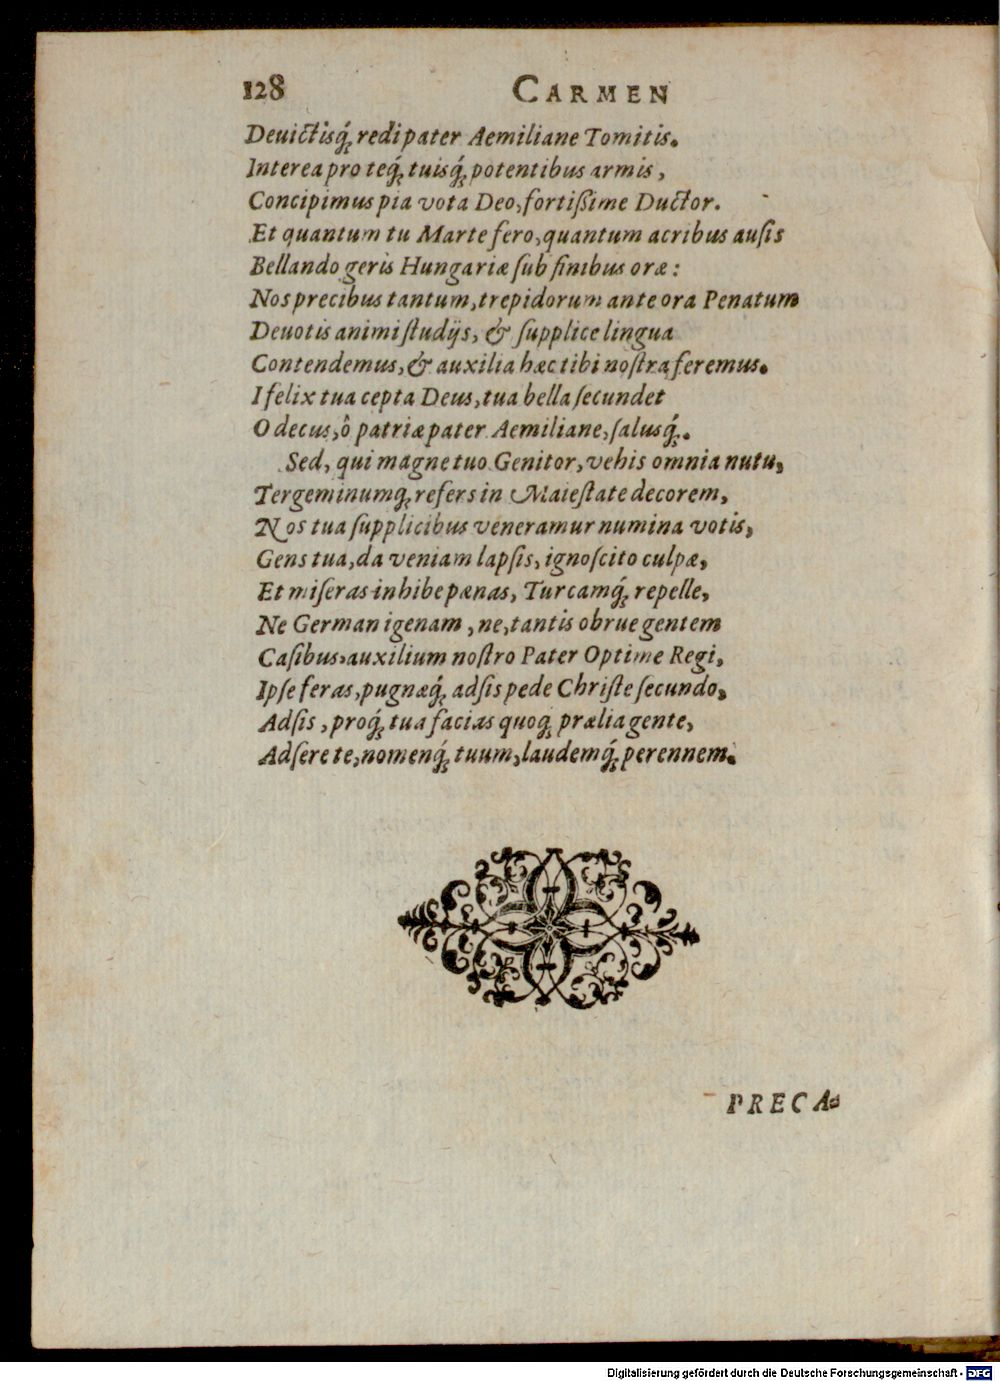 128 CARMEN
Deuictisq́; redi pater Aemiliane Tomitis.
Interea pro teq́; tuisq́; potentibus armis,
Concipimus pia vota Deo, fortißime Ductor.
Et quantum tu Marte fero, quantum acribus ausis
Bellando geris Hungariæ sub finibus oræ:
Nos precibus tantum, trepidorum ante ora Penatum
Deuotis animi studijs, & supplice lingua
Contendemus, & auxilia hæc tibi nostra feremus.
I felix tua cepta Deus, tua bella secundet
O decus, ô patriæ pater Aemiliane, salusq́;.
Sed, qui magne tuo Genitor, vehis omnia nutu,
Tergeminumq; refers in Maiestate decorem,
Nos tua supplicibus veneramur numina votis,
Gens tua, da veniam lapsis, ignoscito culpæ,
Et miseras inhibe pœnas, Turcamq́; repelle,
Ne Germanigenam, ne, tantis obrue gentem
Casibus, auxilium nostro Pater Optime Regi,
Ipse feras, pugnæq́; adsis pede Christe secundo,
Adsis, proq́; tua facias quoq; prælia gente,
Adsere te, nomenq́; tuum, laudemq́; perennem.
PRECA-
Digitalisierung gefördert durch die Deutsche Forschungsgemeinschaft - DFG